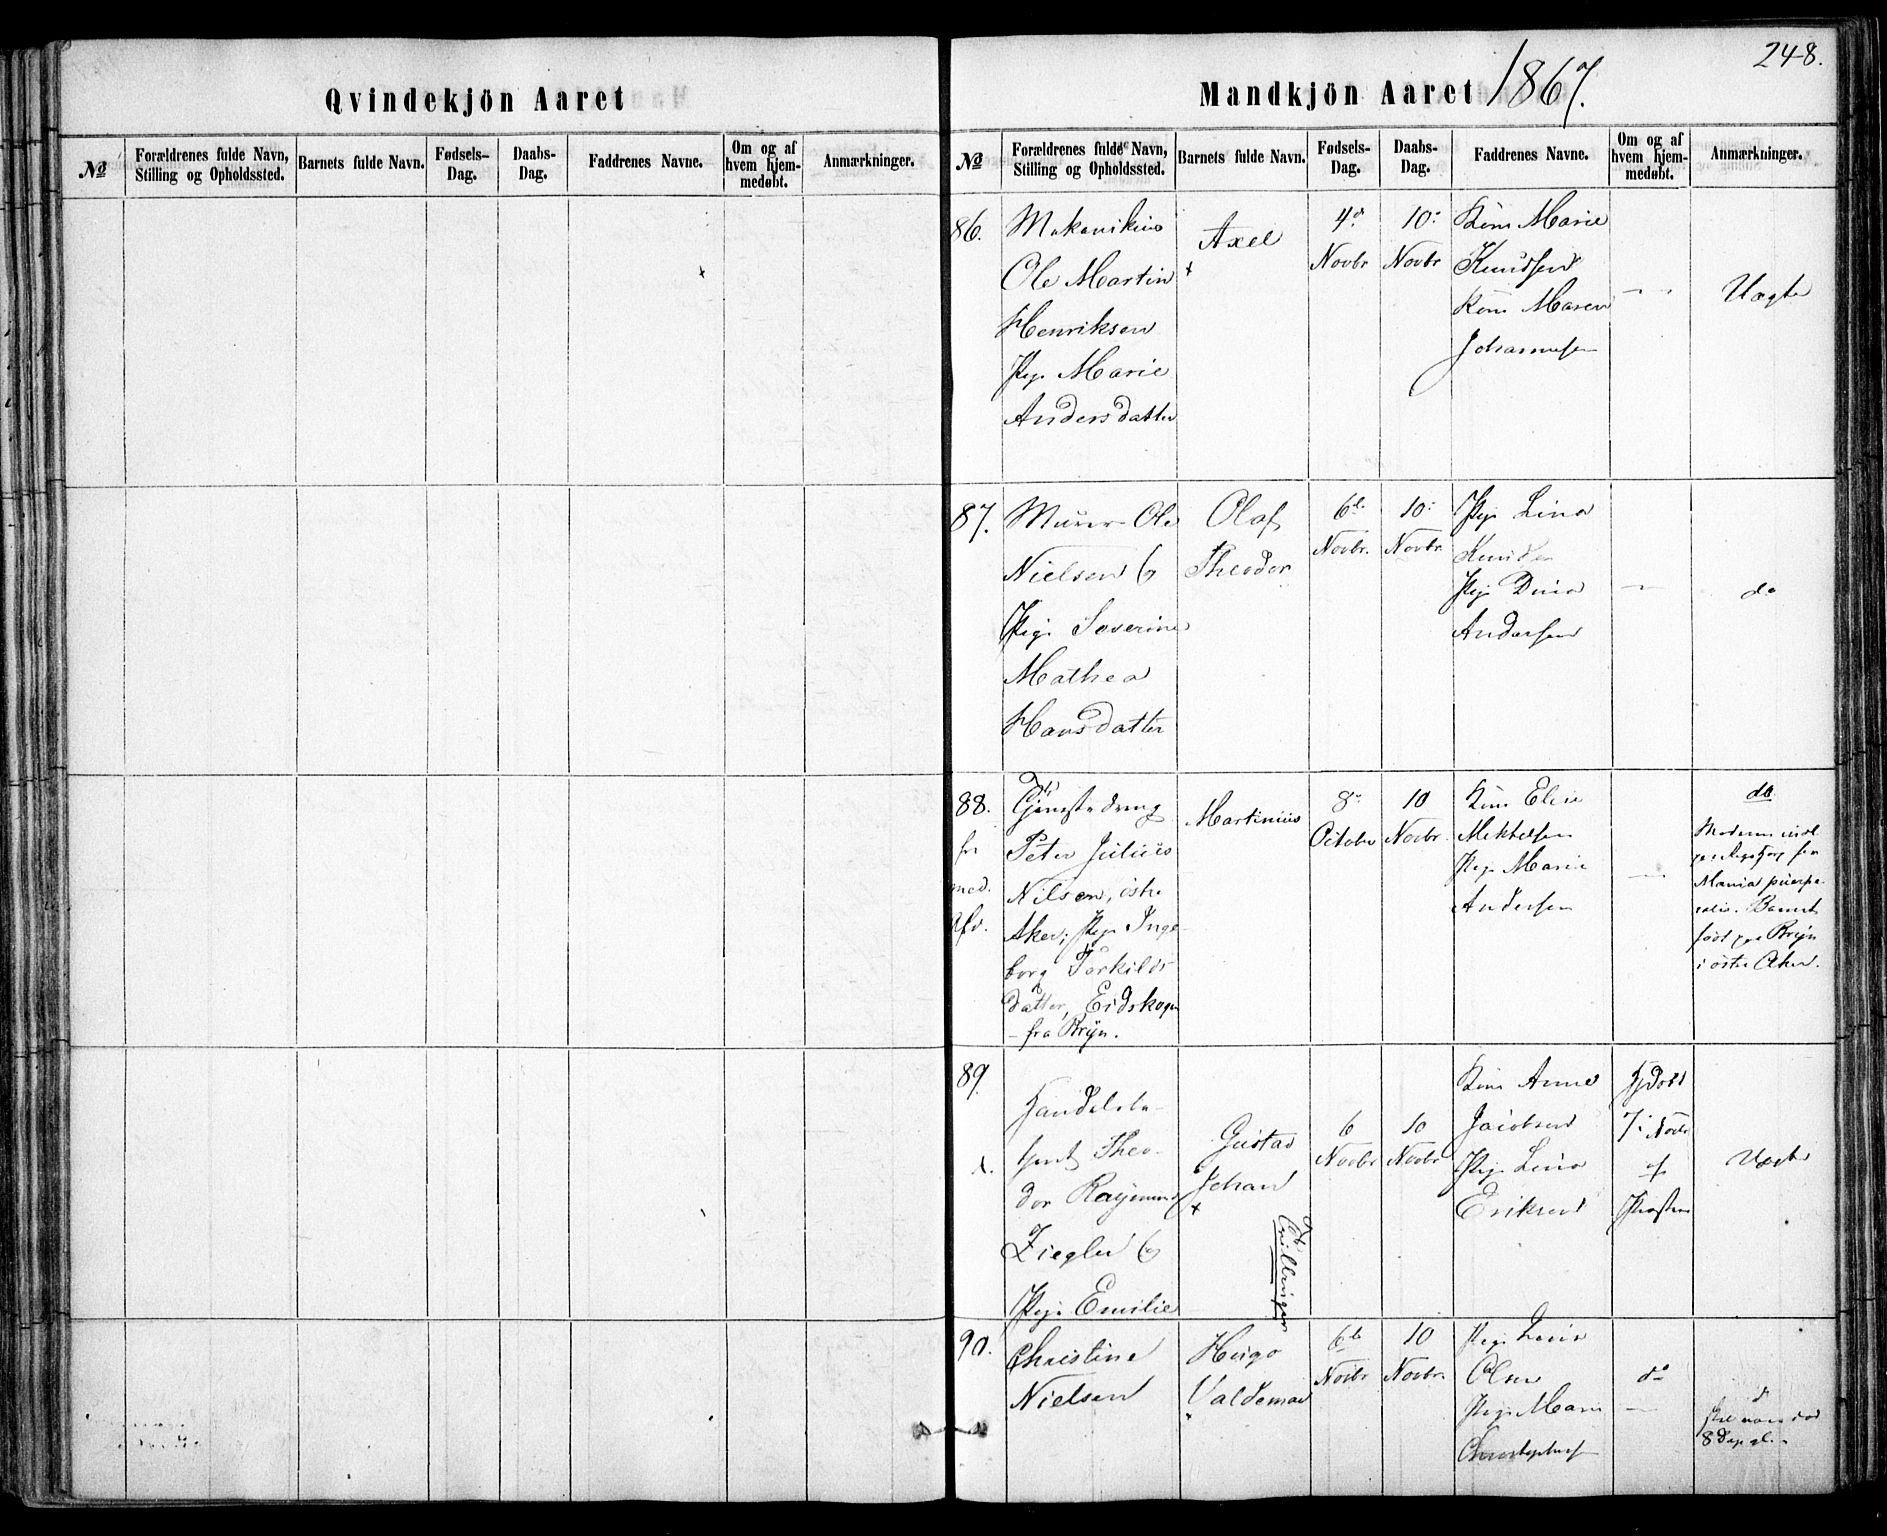 248.
Qvindekjön Aaret
Mandkjön Aaret 1867.
No
Forældrenes fulde Navn, Stilling og Opholdssted.
Barnets fulde Navn.
Fødsels-Dag.
Daabs-Dag.
Faddrenes Navne.
Om og af hvem hjem-medøbt.
Anmærkninger.
No
Forældrenes fulde Navn, Stilling og Opholdssted.
Barnets fulde Navn.
Fødsels-Dag.
Daabs-Dag.
Faddrenes Navne.
Om og af hvem hjem-medøbt.
Anmærkninger.
86.
Mekanikus
Ole Martin
Henriksen
Pige Marie
Andersdatter
Axel
4de
Novbr
10:
Novbr
Kone Marie
Knudsen
Kone Maren
Johannesen
Uægte
87.
Murer Ole
Nielsen &
Pige Severine
Mathea
Hansdatter
Olaf
Theodor
6te
Novbr.
10:
Novbr
Pige Lina
Knudsen
Pige Dina
Andersen
do
88.
Tjenestedreng
Peter Julius
Nilsen, östre
Aker; Pige Inge
borg Torkilds
datter, Eidskogn
- fra Bryn.
Martinius
8de
October
10
Novbr.
Kone Elise
Mikkelsen
Pige Marie
Andersen
do
Moderen indl.
Mania puerpe-
ralis. Barnet
født paa Bryn
i östre Aker.
89.
Handelsbe-
tjent Theo-
dor Raymund
Ziegler &
Pige Emilie
Gustav
Johan
Tvillinger
6
Novbr
10
Novbr
Kone Anne
Jacobsen
Pige Lina
Eriksen
Hjdöbt
7: Novbr
af
Uægte
90.
Christine
Nielsen
Hugo
Valdemar
6te
Novbr
10
Novbr.
Pige Lovise
Olsen
Pige Marie
do
8 Dage gl.